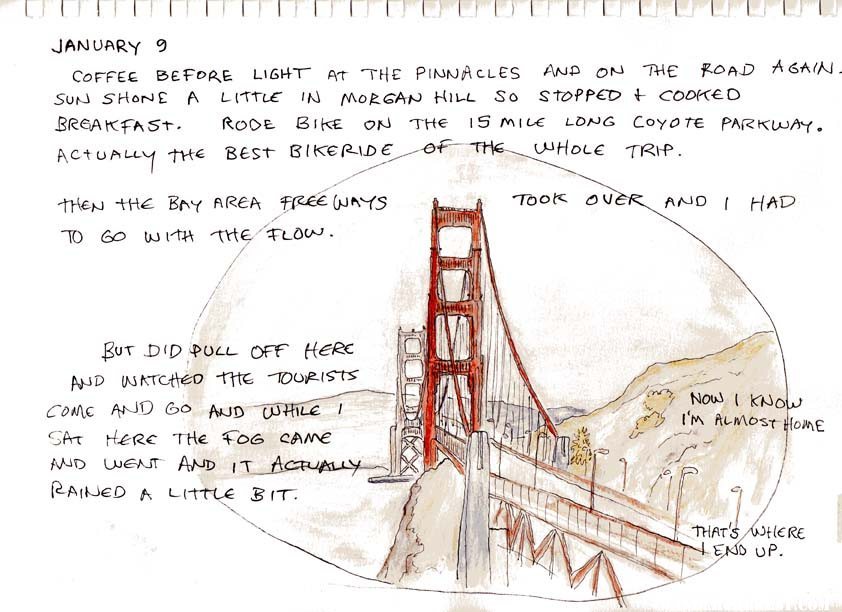 JANUARY 9
COFFEE BEFORE LIGHT AT THE PINNACLES AND ON THE ROAD AGAIN.
SUN SHONE A LITTLE IN MORGAN HILL SO STOPPED + COOKED
BREAKFAST. RODE BIKE ON THE 15 MILE LONG COYOTE PARKWAY.
ACTUALLY THE BEST BIKERIDE OF THE WHOLE TRIP.
THEN THE BAY AREA FREEWAYS TOOK OVER AND I HAD
TO GO WITH THE FLOW.
BUT DID PULL OFF HERE
AND WATCHED THE TOURISTS
COME AND GO AND WHILE I
SAT HERE THE FOG CAME
AND WENT AND IT ACTUALLY
RAINED A LITTLE BIT.
NOW I KNOW
I'M ALMOST HOME
THAT'S WHERE
I END UP.